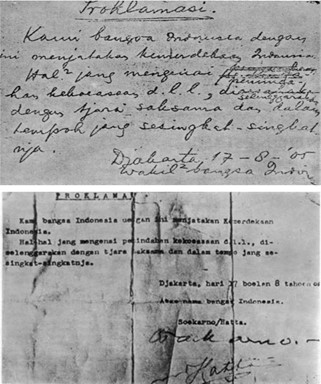 Proklamasi.
Kami bangsa Indonesia dengan
ini menjatakan kemerdekaan Indonesia.
Hal² jang mengenai
han kekoeasaan d.l.l.,
dengan tjara saksama dan dalam
tempoh jang sesingkat-singkat
nja.
Djakarta, 17 - 8 - '05
Wakil² bangsa Indon
PROKLAMA
Kami bangsa Indonesia dengan ini menjatakan Kemerdekaan
Indonesia.
Hal-hal jang mengenai pemindahan kekoeasaan d.l.l., di-
selenggarakan dengan tjara saksama dan dalam tempo jang se-
singkat-singkatnja.
Djakarta, hari 17 boelan 8 tahoen 05
Atas nama bangsa Indonesia.
Soekarno/Hatta.
Soekarno.-
Hatta